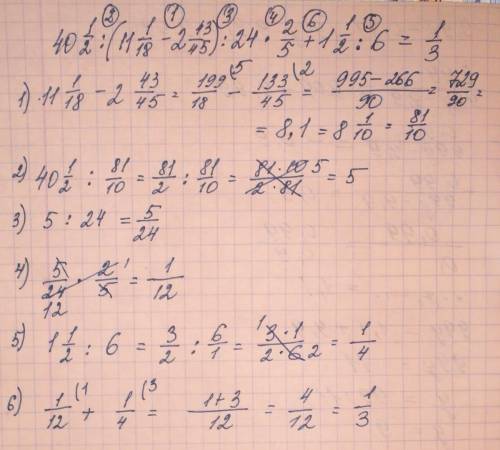 ② ① ③ ④ ⑥ ⑤
40 1/2 : (11 1/18 - 2 43/45) : 24 · 2/5 + 1 1/2 : 6 = 1/3
1) 11 1/18 - 2 43/45 = 199/18 (5 - 133/45 (2 = 995-266/90 = 729/90 =
= 8,1 = 8 1/10 = 81/10
2) 40 1/2 : 81/10 = 81/2 : 81/10 = 81·10/2·81 5 = 5
3) 5 : 24 = 5/24
4) 5/24 12 · 2/5 1 = 1/12
5) 1 1/2 : 6 = 3/2 : 6/1 = 1 3·1/2·6 2 = 1/4
6) 1/12 (1 + 1/4 (3 = 1+3/12 = 4/12 = 1/3